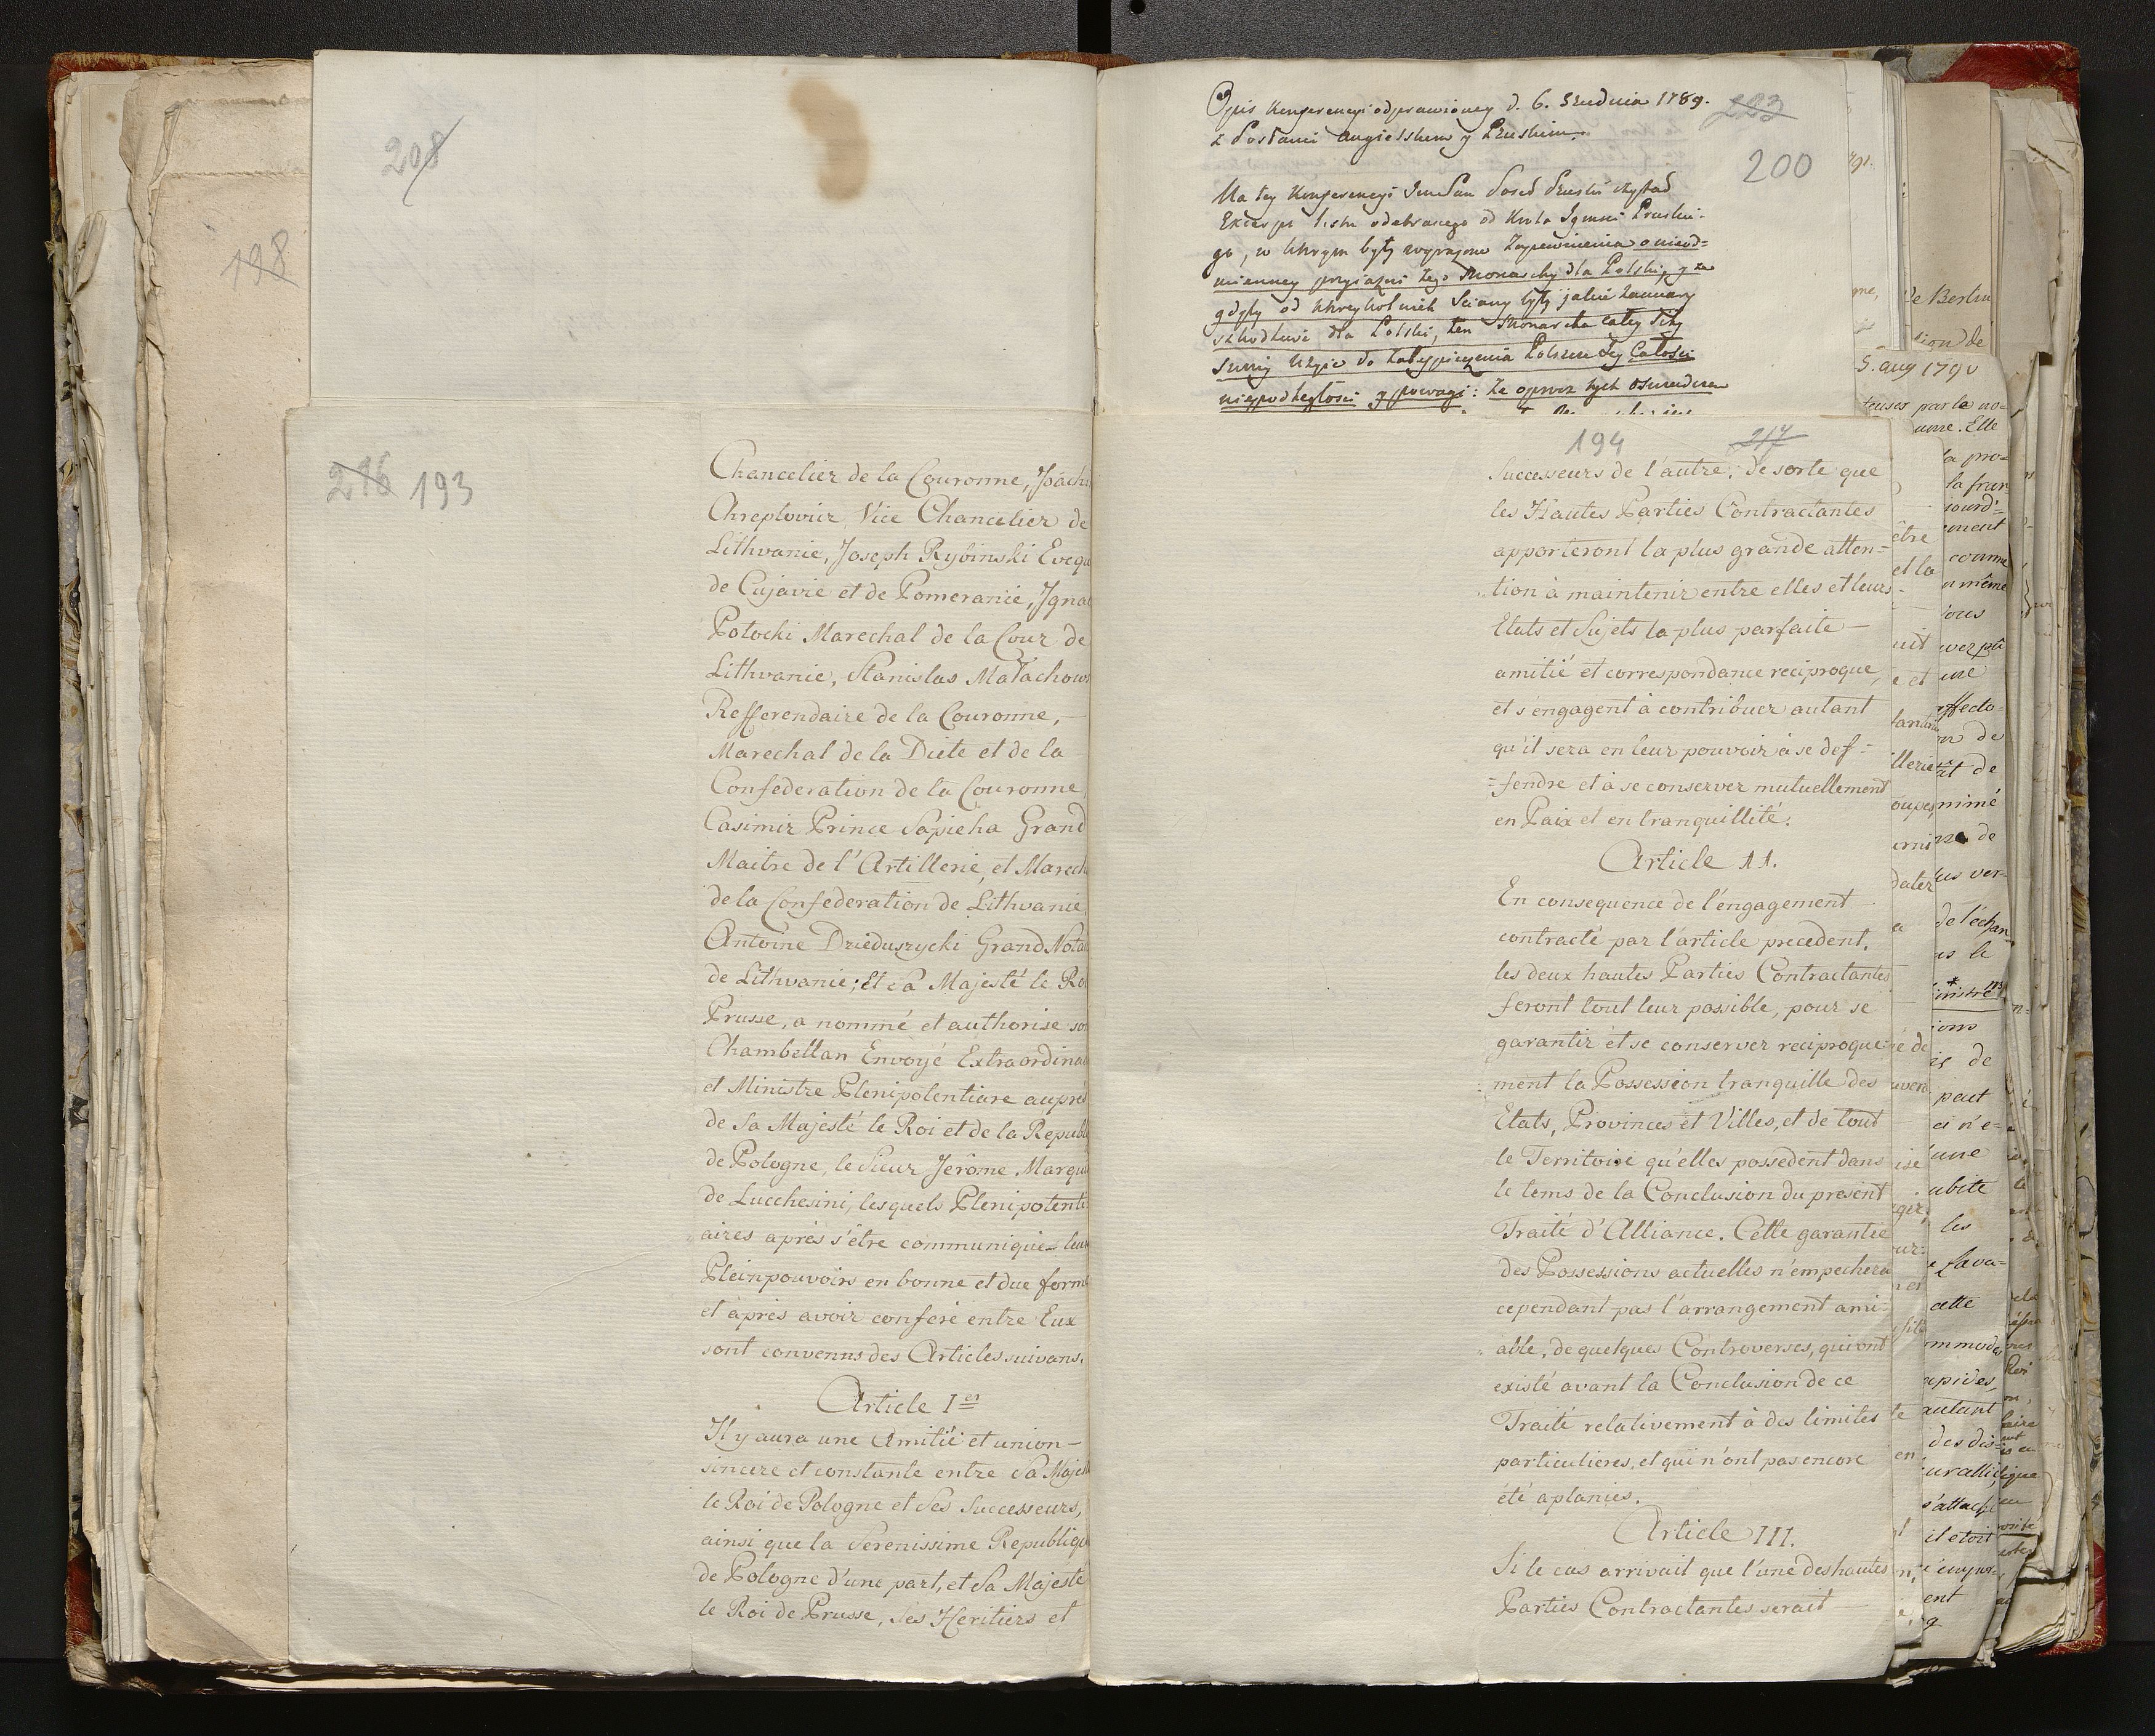 208
198
223
200
Opis Konferencyi odprawioney d. 6. Grudnia 1789.
z Posłami Angielskim y Pruskim.
Na tey Konferencyi Jmć Pan Poseł Pruski czytał
Excerpt listu odebranego od Krola Jgmsci Pruskie-
go, w ktorym były wyrażone Zapewnienia o nieod=
mienney przyiaźni tego Monarchy dla Polski, y że
gdyby od ktoreykolwiek Sciany były jakie zamiary
szkodliwe dla Polski, ten Monarcha całey Siły
Swoiey użyie do zabespieczenia Polszcze Jey Całości
niepodległości y powagi: że oprocz tych
216 193
Chancelier de la Couronne, Joachi
Chreptovicz Vice Chancelier de
Lithvanie, Joseph Rybinski Evequ
de Cujavie et de Pomeranie, Ignac
Potocki Marechal de la Cour de
Lithvanie, Stanislas Małachows
Refferendaire de la Couronne,
Marechal de la Diete et de la
Confederation de la Couronne,
Casimir Prince Sapieha Grand
Maitre de l'Artillerie, et Marech
de la Confederation de Lithvanie
Antoine Dzieduszycki Grand Nota
de Lithvanie; Et Sa Majesté le Ro
Prusse, a nommé et authorise son
Chambellan Envoyé Extraordinai
et Ministre Plenipotentiare auprès
de Sa Majesté le Roi et de la Republi
de Pologne, le Sieur Jerôme Marquis
de Lucchesini, lesquels Plenipotenti
aires aprés s'être communiquée leur
Pleinpouvoirs en bonne et due forme
et aprés avoir conferé entre Eux
sont convenus des Articles suivans.
Article Ier
Il y aura une Amitié et union
sincere et constante entre Sa Majesté
le Roi de Pologne et Ses Successeurs,
ainsi que la Serenissime Republique
de Pologne d'une part, et Sa Majesté
le Roi de Prusse, Ses Heritiers et
194 217
Successeurs de l'autre, de sorte que
les Hautes Parties Contractantes
apporteront la plus grande atten=
tion à maintenir entre elles et leurs
Etats et Sujets la plus parfaite
amitié et correspondance reciproque,
et s'engagent à contribuer autant
qu'il sera en leur pouvoir à se def=
=fendre et à se conserver mutuellement
en Paix et en tranquillité.
Article 11.
En consequence de l'engagement
contracté par l'article precedent,
les deux hautes Parties Contractantes
feront tout leur possible, pour se
garantir et se conserver reciproque=
ment la Possession tranquille des
Etats, Provinces et Villes, et de tout
le Territoire qu'elles possedent dans
le tems de la Conclusion du present
Traité d'Alliance. Cette garantie
des Possessions actuelles n'empechera
cependant pas l'arrangement ami=
able, de quelques Controverses, qui ont
existé avant la Conclusion de ce
Traité relativement à des limites
particulieres, et qui n'ont pas encore
été aplanies.
Article 111.
Si le cas arrivait que l'une des hautes
Parties Contractantes serait
de Berlin
5. aug 1790